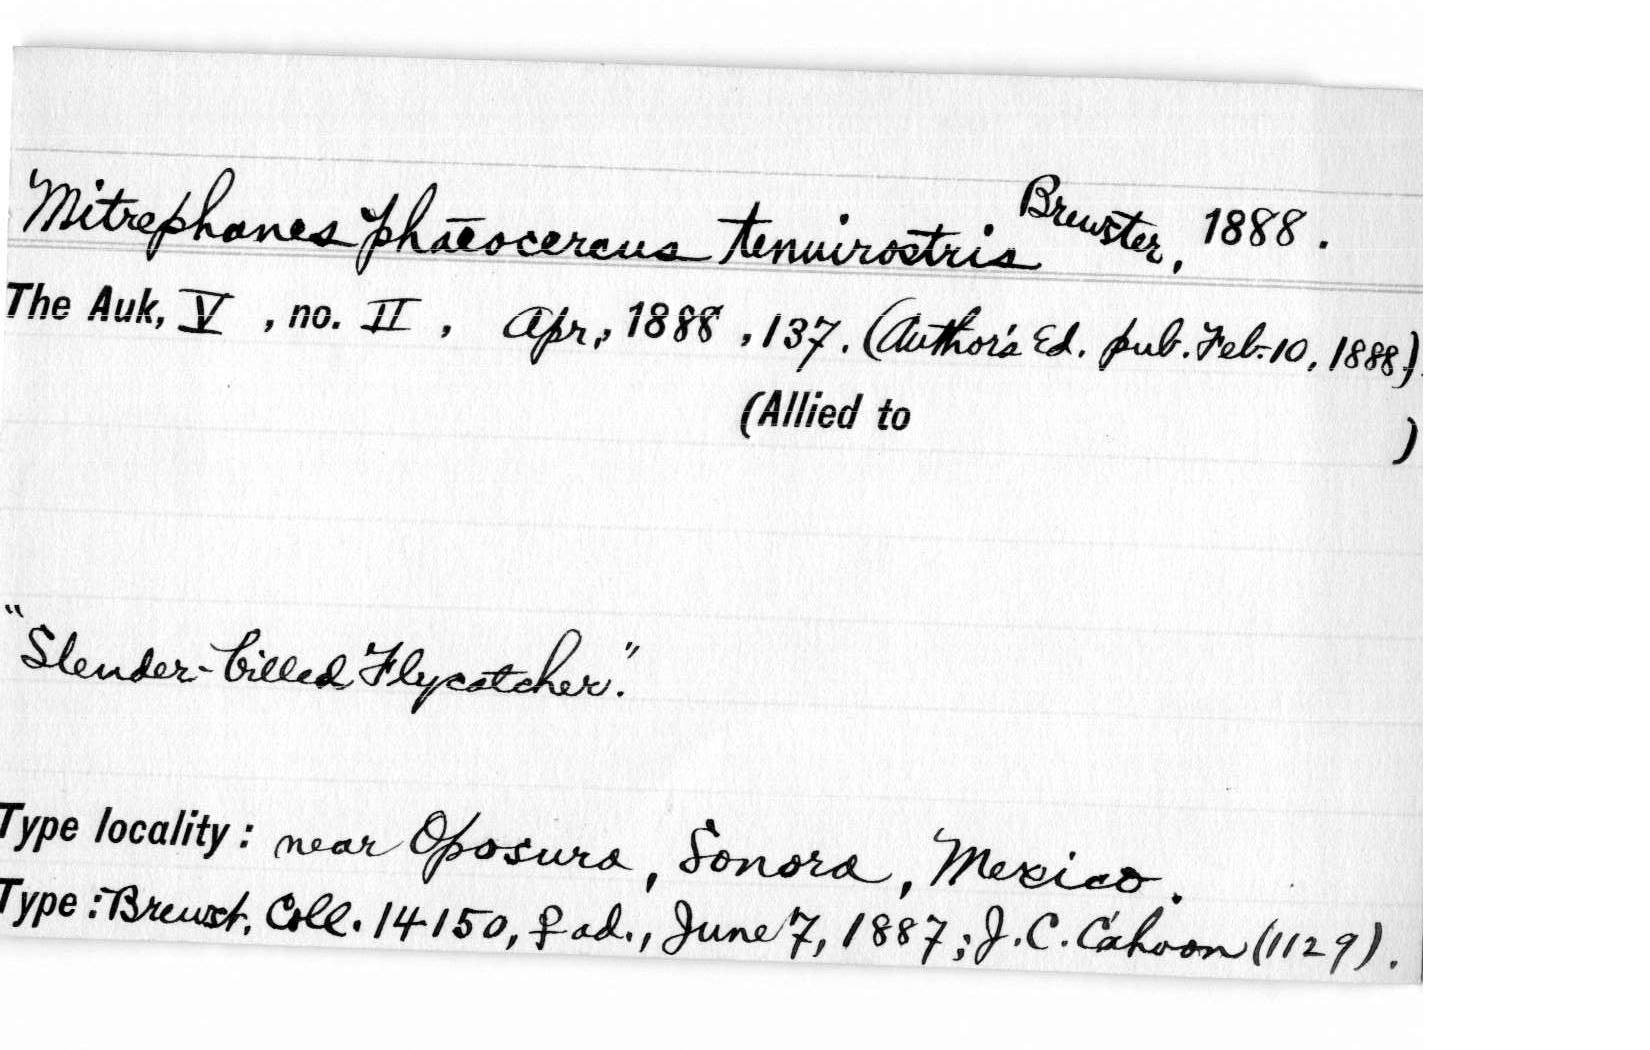 Mitrephanes phaeocercus tenuirostris Brewster, 1888.
The Auk, V, no. II, Apr., 1888, 137. (Author's Ed. pub. Feb. 10, 1888).
(Allied to )
"Slender-billed Flycatcher."
Type locality: near Oposura, Sonora, Mexico.
Type: Brewst. Coll. 14150, ♀ ad., June 7, 1887; J. C. Cahoon (1129).